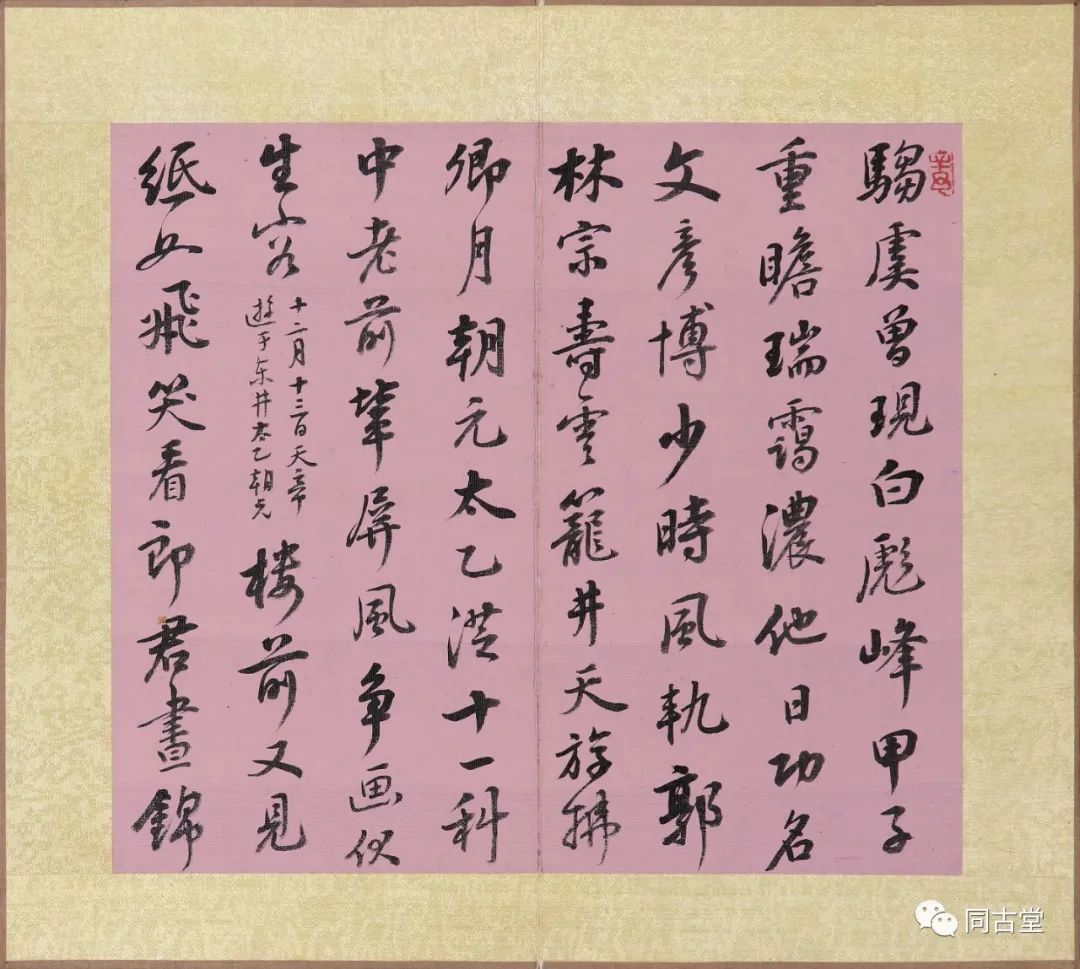 騶虞曾現白彪峰甲子
重瞻瑞靄濃他日功名
文彥博少時風軌郭
林宗壽雲籠井天旂拂
卿月朝元太乙從十一科
中老前輩屏風爭画伏
生容
十二月十三日天帝
遊于東井太乙朝元
樓前又見
紙女飛笑看郎君晝錦
同古堂